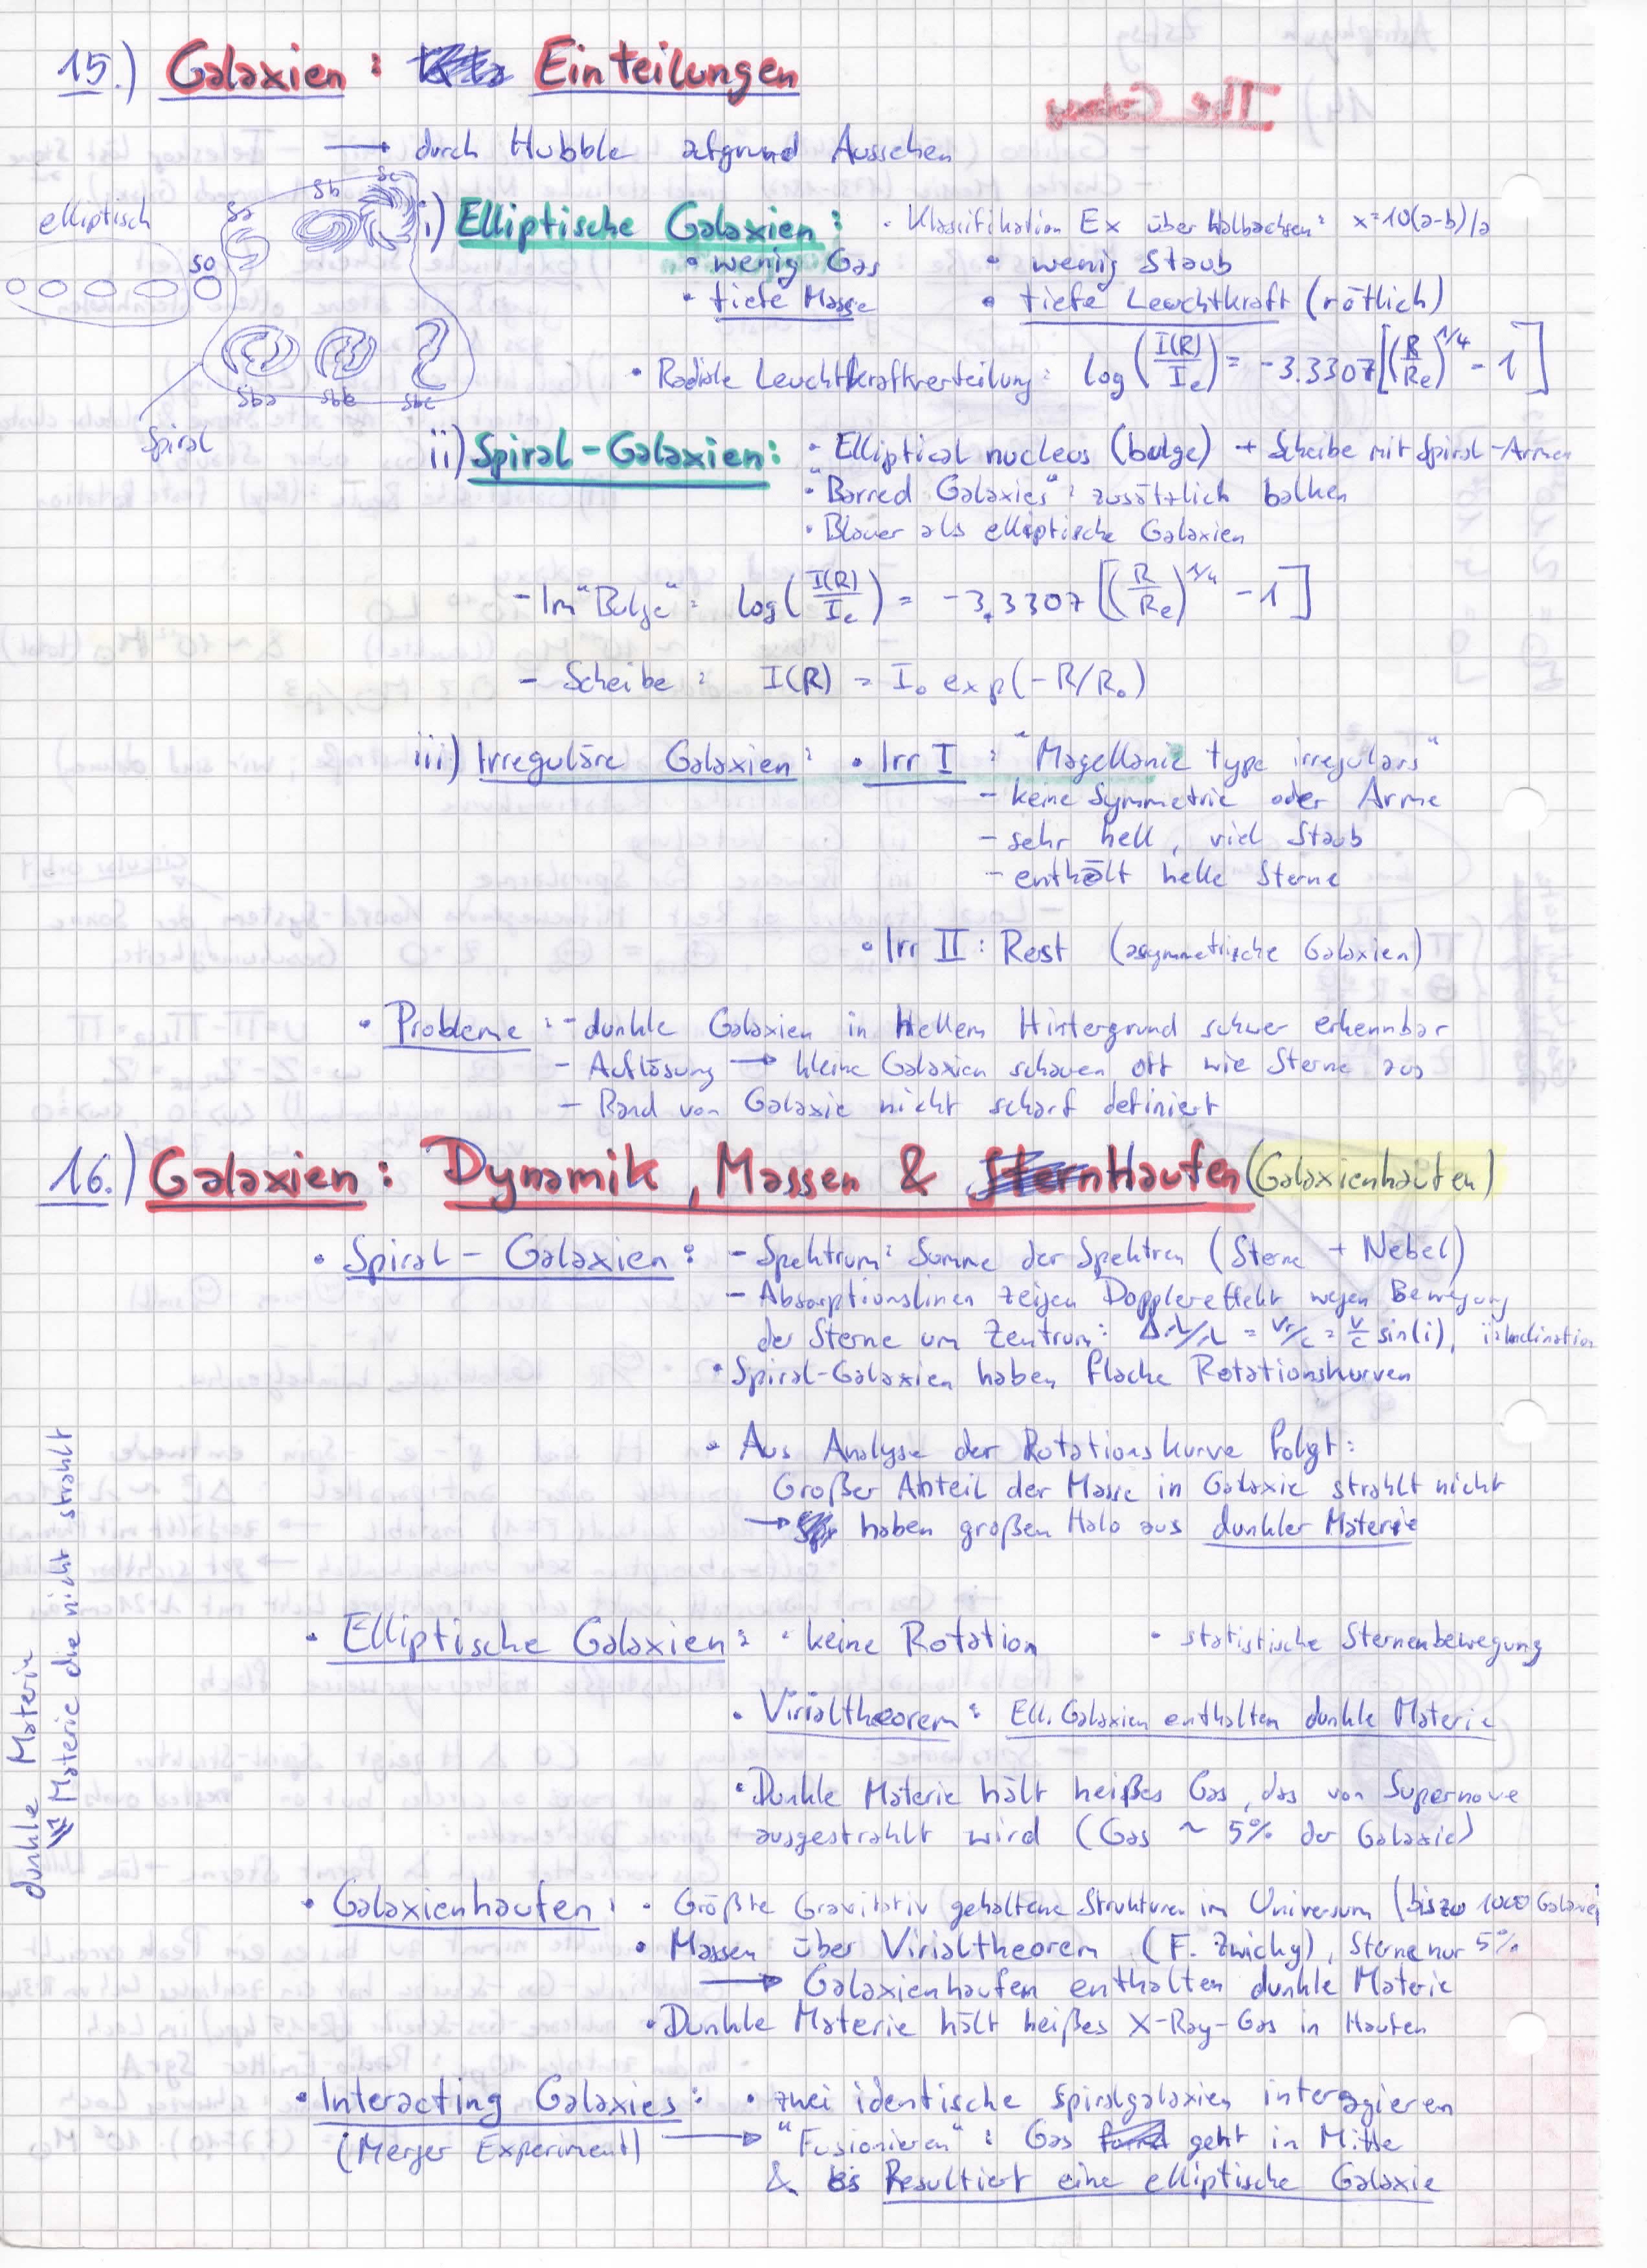 15.) Galaxien: Einteilungen
→ durch Hubble afgrund Aussehen
elliptisch
S0
Sa
Sb
Sc
Sba
Sbb
Sbc
Spiral
i) Elliptische Galaxien: • Klassifikation Ex über Halbachsen: x=10(a-b)/a
• wenig Gas • wenig Staub
• tiefe Masse • tiefe Leuchtkraft (rötlich)
• Radiale Leuchtkraftverteilung: log(I(R)/Ie) = -3.3307[(R/Re)^1/4 - 1]
ii) Spiral-Galaxien: • Elliptical nucleus (bulge) + Scheibe mit Spiral-Armen
• "Barred Galaxies": zusätzlich balken
• Blauer als elliptische Galaxien
- Im "Bulge": log(I(R)/Ie) = -3.3307 [(R/Re)^1/4 - 1]
- Scheibe: I(R) = I₀ exp(-R/R₀)
iii) Irreguläre Galaxien: • Irr I: "Magellanic type irregulars"
- keine Symmetrie oder Arme
- sehr hell, viel Staub
- enthält helle Sterne
• Irr II: Rest (asymmetrische Galaxien)
• Probleme: - dunkle Galaxien in Hellem Hintergrund schwer erkennbar
- Auflösung → kleine Galaxien schauen oft wie Sterne aus
- Rand von Galaxie nicht scharf definiert
16.) Galaxien: Dynamik, Massen & Haufen (Galaxienhaufen)
• Spiral-Galaxien: - Spektrum: Summe der Spektren (Sterne + Nebel)
- Absorptionslinen zeigen Dopplereffekt wegen Bewegung
der Sterne um Zentrum: Δλ/λ = vr/c = v/c sin(i), i: Inclination
• Spiral-Galaxien haben flache Rotationskurven
• Aus Analyse der Rotationskurve folgt:
Großer Anteil der Masse in Galaxie strahlt nicht
→ haben großen Halo aus dunkler Materie
dunkle Materie
= Materie die nicht strahlt
• Elliptische Galaxien: • keine Rotation • statistische Sternenbewegung
• Virialtheorem: Ell. Galaxien enthalten dunkle Materie
• Dunkle Materie hält heißes Gas, das von Supernove
ausgestrahlt wird (Gas ~ 5% der Galaxie)
• Galaxienhaufen: • Größte Gravitativ gehaltene Strukturen im Universum (bis zu 1000 Galaxie
• Massen über Virialtheorem (F. Zwicky), Sterne nur 5%
→ Galaxienhaufen enthalten dunkle Materie
• Dunkle Materie hält heißes X-Ray-Gas in Haufen
• Interacting Galaxies: • zwei identische Spiralgalaxien interagieren
(Merger Experiment) → "Fusionieren": Gas geht in Mitte
& Es Resultiert eine elliptische Galaxie